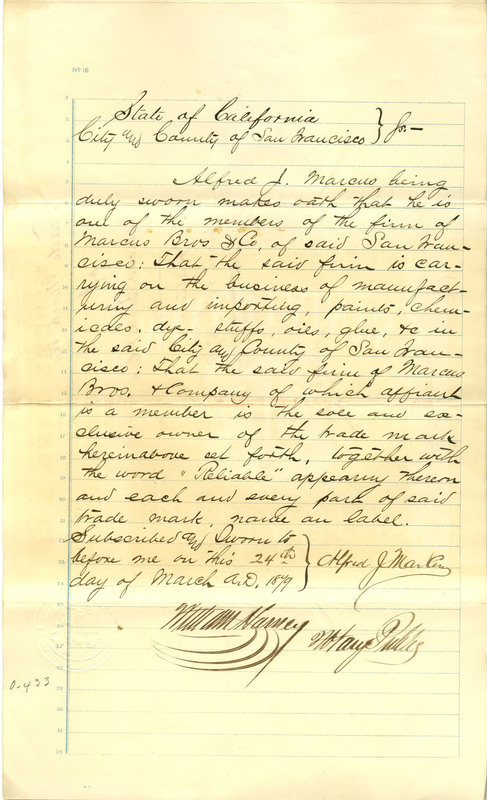 No 16
State of California
City and County of San Francisco } ss.—
Alfred J. Marcus being
duly sworn makes oath that he is
one of the members of the firm of
Marcus Bros & Co. of said San Fran-
cisco: That the said firm is car-
rying on the business of manufact-
uring and importing, paints, chem-
icals, dye- stuffs, oils, glue, &c in
the said City and County of San Fran-
cisco: That the said firm of Marcus
Bros. & Company of which affiant
is a member is the sole and ex-
clusive owner of the trade mark
hereinabove set forth, together with
the word "Reliable" appearing thereon
and each and every part of said
trade mark, name an label.
Subscribed and Sworn to
before me on this 24th } Alfred J Marcus
day of March A.D. 1879
William Harney
Notary Public
0-433